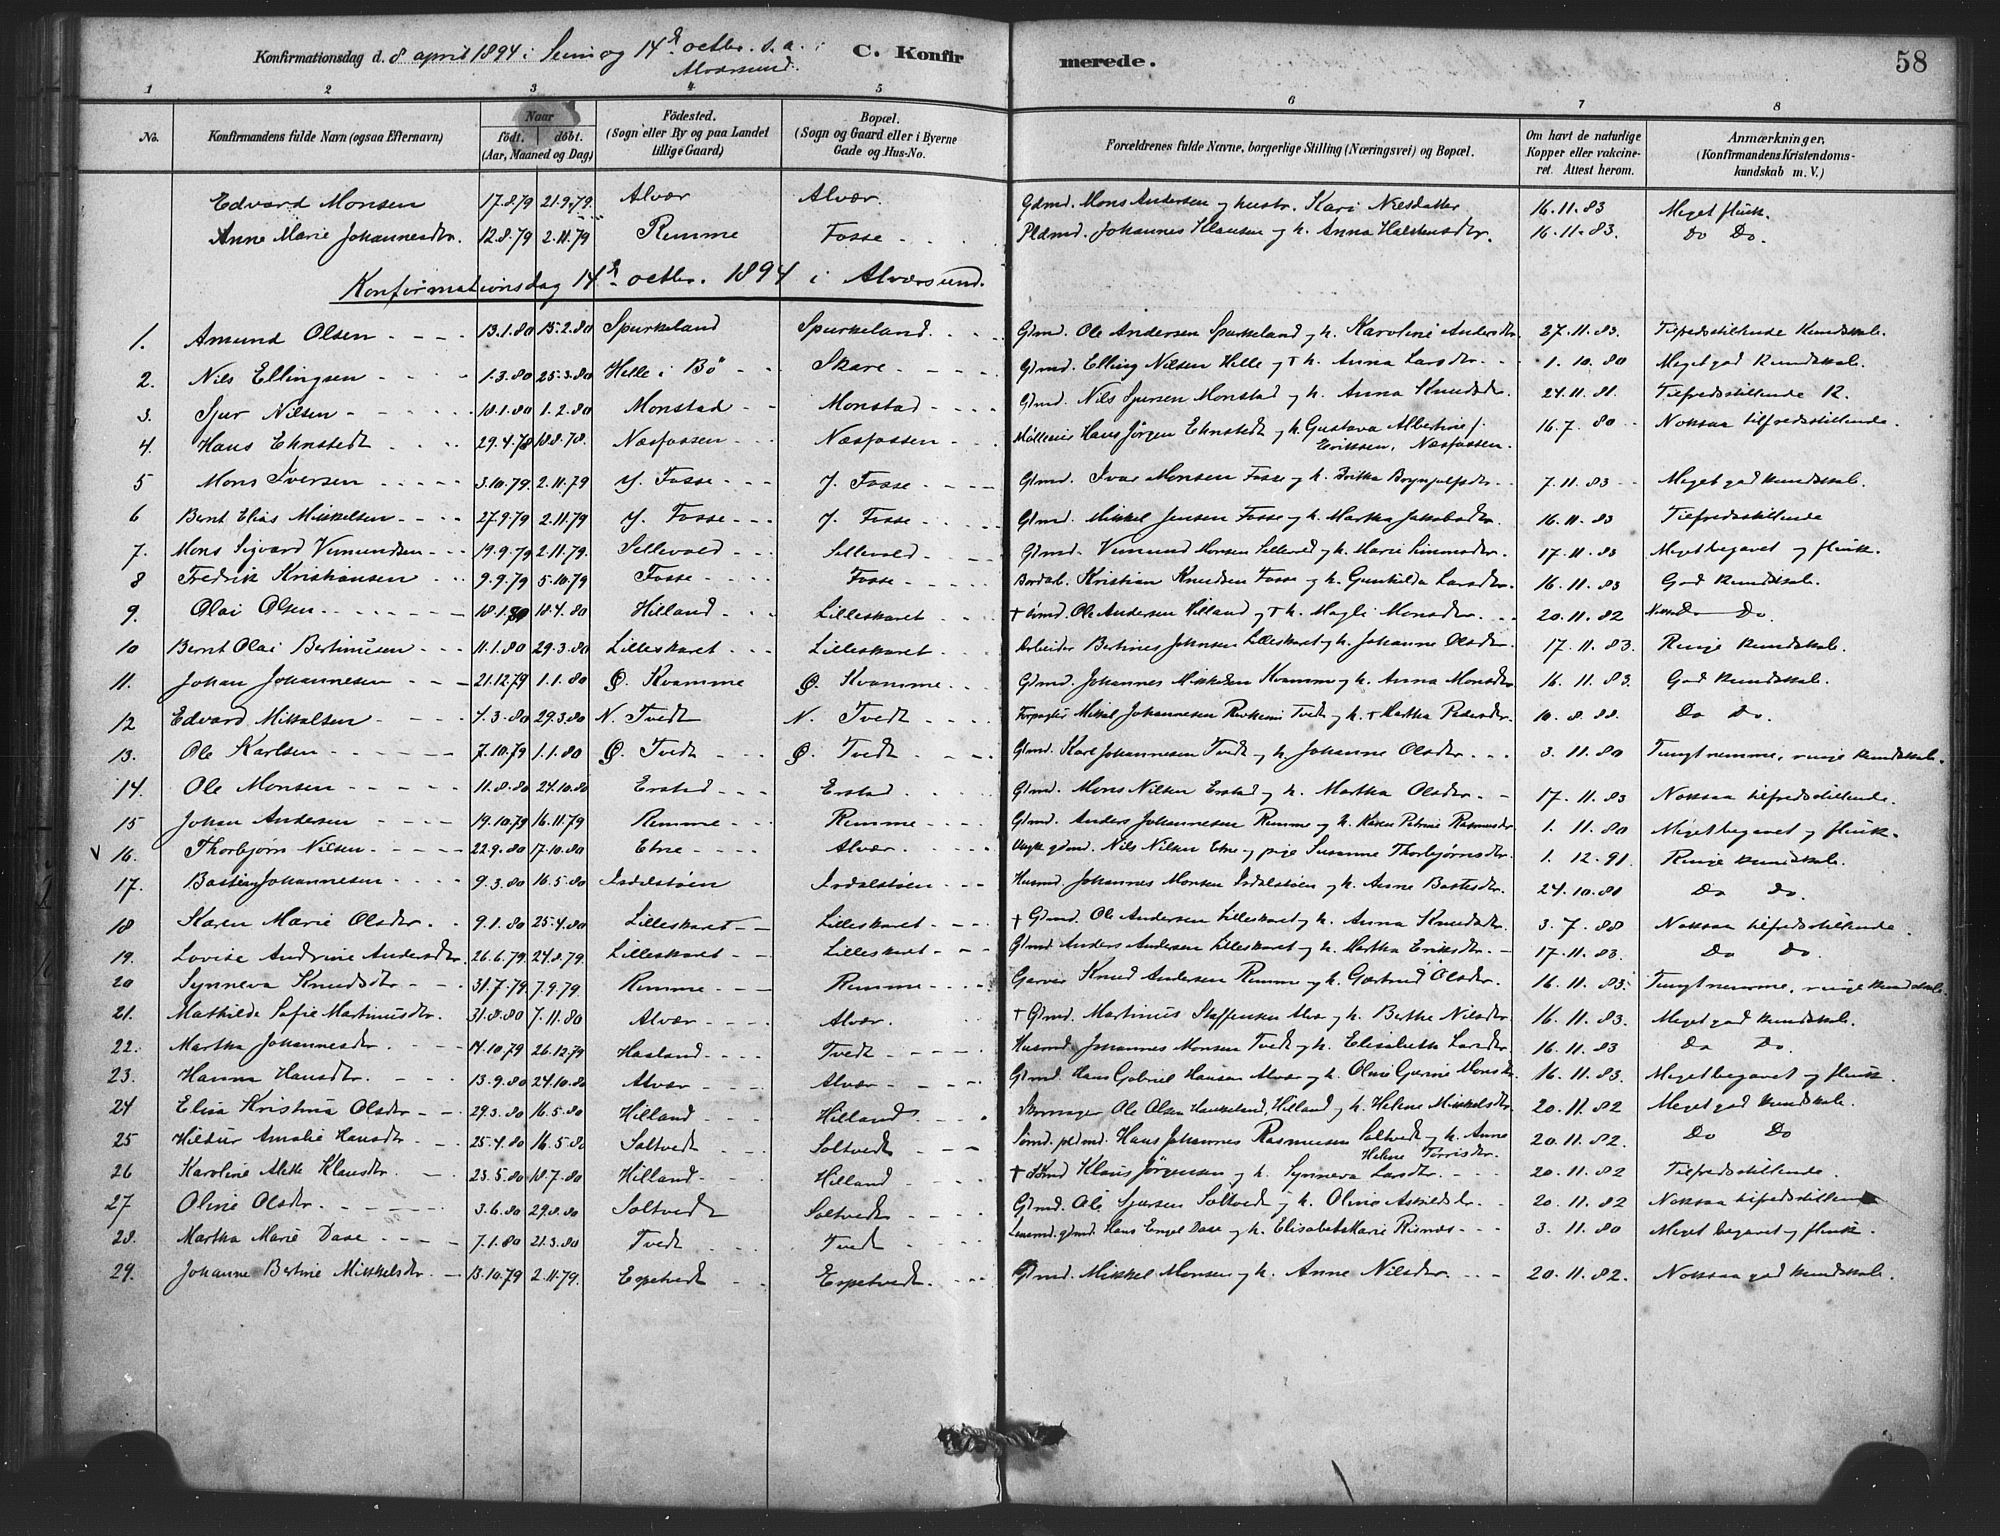 Konfirmationsdag d. 8 april 1894 i Seim og 14de octbr. s. a. i Alversund.
C. Konfirmerede.
58
1 2 3 4 5 6 7 8
No. Konfirmandens fulde Navn (ogsaa Efternavn) Naar födt. döbt. (Aar, Maaned og Dag) Födested. (Sogn eller By og paa Landet tillige Gaard) Bopæl. (Sogn og Gaard eller i Byerne Gade og Hus-No. Forældrenes fulde Navne, borgerlige Stilling (Næringsvei) og Bopæl. Om havt de naturlige Kopper eller vakcineret. Attest herom. Anmærkninger, (Konfirmandens Kristendomskundskab m. V.)
Edvard Monsen 17.8.79 21.9.79. Alvær Alvær. Gdmd. Mons Andersen og hustr. Kari Nilsdatter 16.11.83 Meget flink.
Anne Marie Johannesdtr. 12.8.79 2.11.79 Remme Fosse Pldmd. Johannes Klausen og h. Anna Halstensdtr. 16.11.83. Do Do.
Konfirmationsdag 14de octbr. 1894 i Alversund.
1. Amund Olsen 13.1.80 15.2.80 Spurkeland Spurkeland Gdmd. Ole Andersen Spurkeland og h. Karoline Andersdtr 27.11.83. Tilfredsstillende Kundskab.
2. Nils Ellingsen 1.3.80 25.3.80 Helle i Bö Skare Gdmd. Elling Nilsen Helle og † h. Anna Larsdtr 1.10.80 Meget god kundskab.
3. Sjur Nilsen 10.1.80 1.2.80 Monstad Monstad Gdmd. Nils Sjursen Monstad og h. Anna Knudsdtr 24.11.81. Tilfredsstillende K.
4. Hans Ehnstedt 29.4.78 18.8.78. Næsfossen Næsfossen Hans Jørgen Ehnstedt og h. Gustava Albertine f. Erikssen, Næsfossen. 16.7.80 Noksaa tilfredsstillende.
5 Mons Iversen 3.10.79. 2.11.79 Y. Fosse Y. Fosse Gdmd. Ivar Monsen Fosse og h. Britha Brynjulfsdtr 7.11.83 Meget god kundskab.
6 Bernt Elias Mikkelsen 27.9.79 2.11.79 Y. Fosse Y. Fosse Gdmd. Mikkel Jensen Fosse og h. Martha Jakobsdtr. 16.11.83 Tilfredsstillende
7. Mons Sigvard Vemundsen 19.9.79 2.11.79. Sellevold Sellevold Gdmd. Vemund Monsen Sellevold og h. Marie Simonsdtr. 17.11.83 Meget begavet og flink.
8 Fredrik Kristiansen 9.9.79 5.10.79 Fosse Fosse Kristian Knudsen Fosse og h. Gunhilda Larsdtr 16.11.83 God kundskab.
9. Olai Olsen 18.4.80 Hilland Lilleskaret † Ole Andersen Hilland og † h. Magli Monsdtr 20.11.82 Do Do
10 Bernt Olai Bertinusen 11.1.80 29.3.80 Lilleskaret Lilleskaret Arbeider Bertines Johnsen Lilleskaret og h. Johanne Olsdtr. 17.11.83. Ringe kundskab.
11. Johan Johannesen 21.12.79 1.1.80 Ø. Kvamme Ø. Kvamme Gdmd. Johannes Mikkelsen Kvamme og h. Anna Monsdtr. 16.11.83. God kundskab.
12 Edvard Mikkelsen 4.3.80 29.3.80 N. Tvedt N. Tvedt Forpagter Mikkel Johannesen Tvedt og h. † Martha Pedersdtr. 10.8.88. Do Do.
13. Ole Karlsen 7.10.79 1.1.80 Ø. Tvedt Ø. Tvedt Gdmd. Karl Johannesen Tvedt og h. Johanne Olsdtr 3.11.80 Tungt nemme, ringe kundskab.
14. Ole Monsen 11.8.80 24.10.80 Erstad Erstad Gdmd. Mons Nilsen Erstad og h. Martha Olsdtr. 17.11.83 Noksaa tilfredsstillende.
15 Johan Andersen 19.10.79 16.11.79 Remme Remme Gdmd. Anders Johannesen Remme og h. Karen Petrine Rasmusdtr 1.11.80 Meget begavet og flink.
V 16. Thorbjørn Nilsen 22.9.80 17.10.80 Etne Alvær. Nils Nilsen Etne og pige Susanne Thorbjørnsdtr. 1.12.91. Ringe kundskab.
17. Bastian Johannesen 9.3.80 16.5.80 Isdalstøen Isdalstøen Husmd. Johannes Monsen Isdalstøen og h. Anne Bastesdtr. 24.10.80 Do Do.
18 Karen Marie Olsdtr. 9.1.80 25.4.80 Lilleskaret Lilleskaret † Gdmd. Ole Andersen Lilleskaret og h. Anna Knudsdtr 3.7.88 Noksaa tilfredsstillende.
19. Lovise Andrine Andersdtr. 26.6.79 24.8.79. Lilleskaret Lilleskaret Gdmd Anders Andersen Lilleskaret og h. Martha Eriksdtr. 17.11.83. Do Do.
20 Synneva Knudsdtr 31.7.79 7.9.79. Remme Remme Garver Knud Andersen Remme og h. Gjertrud Olsdtr. 16.11.83. Tungt nemme, ringe kundskab.
21. Mathilde Sofie Martinusdtr. 31.8.80 7.11.80 Alvær Alvær. † Gdmd. Martinus Steffensen Alvær og h. Berthe Nilsdtr 16.11.83. Meget god kundskab.
22. Martha Johannesdtr. 14.10.79 26.12.79 Hasland Tvedt Husmd Johannes Monsen Tvedt og h. Elisabeth Larsdtr. 16.11.83 Do Do.
23. Hanna Hansdtr. 13.9.80 24.10.80 Alvær Alvær Gdmd. Hans Gabriel Hansen Alvær og h. Oline Gurine Monsdtr. 16.11.83. Meget begavet og flink.
24 Elisa Kristina Olsdtr 29.3.80 16.5.80 Hilland Hilland Skomager Ole Olsen Haukeland, Hilland og h. Helene Mikkelsdtr. 20.11.82 Meget god kundskab.
25 Hildur Amalie Hansdtr 25.4.80 16.5.80 Soltvedt Soltvedt Sømd. pldmd. Hans Johannes Rasmussen Soltvedt og h. Anne Helene Torrisdtr. 20.11.82. Do Do
26 Karoline Alette Klausdtr. 23.5.80 18.7.80 Hilland Hilland † Klaus Jørgensen og h. Synneva Larsdtr 20.11.82 Tilfredsstillende.
27 Oline Olsdtr. 3.6.80 29.8.80 Soltvedt Soltvedt Gdmd. Ole Sjursen Soltvedt og h. Oline Askildsdtr. 20.11.82 Noksaa tilfredsstillende
28. Martha Marie Daae 7.1.80 21.3.80 Tvedt Tvedt Lensmd. gdmd. Hans Engel Daae og h. Elisabet Marie Risnes 3.11.80 Meget begavet og flink.
29. Johanne Bertine Mikkelsdtr. 13.10.79 2.11.79. Espetvedt Espetvedt. Gdmd. Mikkel Monsen og h. Anne Nilsdtr. 20.11.82. Noksaa god kundskab.